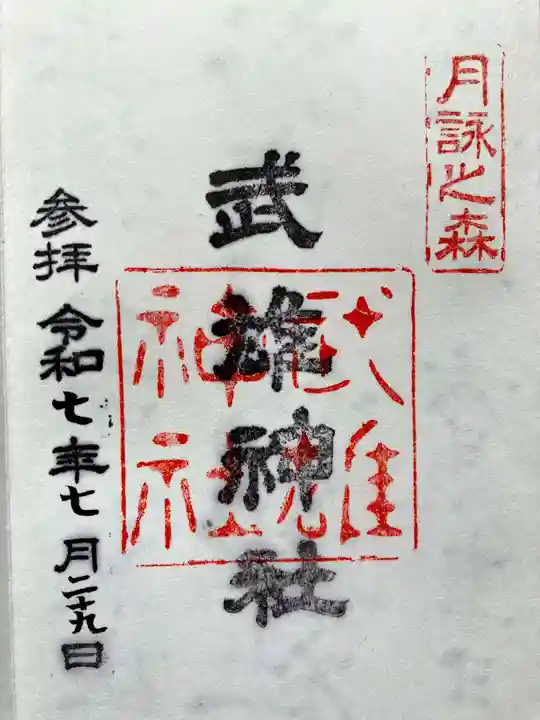 月詠之森
武雄神社
武雄
神社
参拝 令和七年七月二十九日